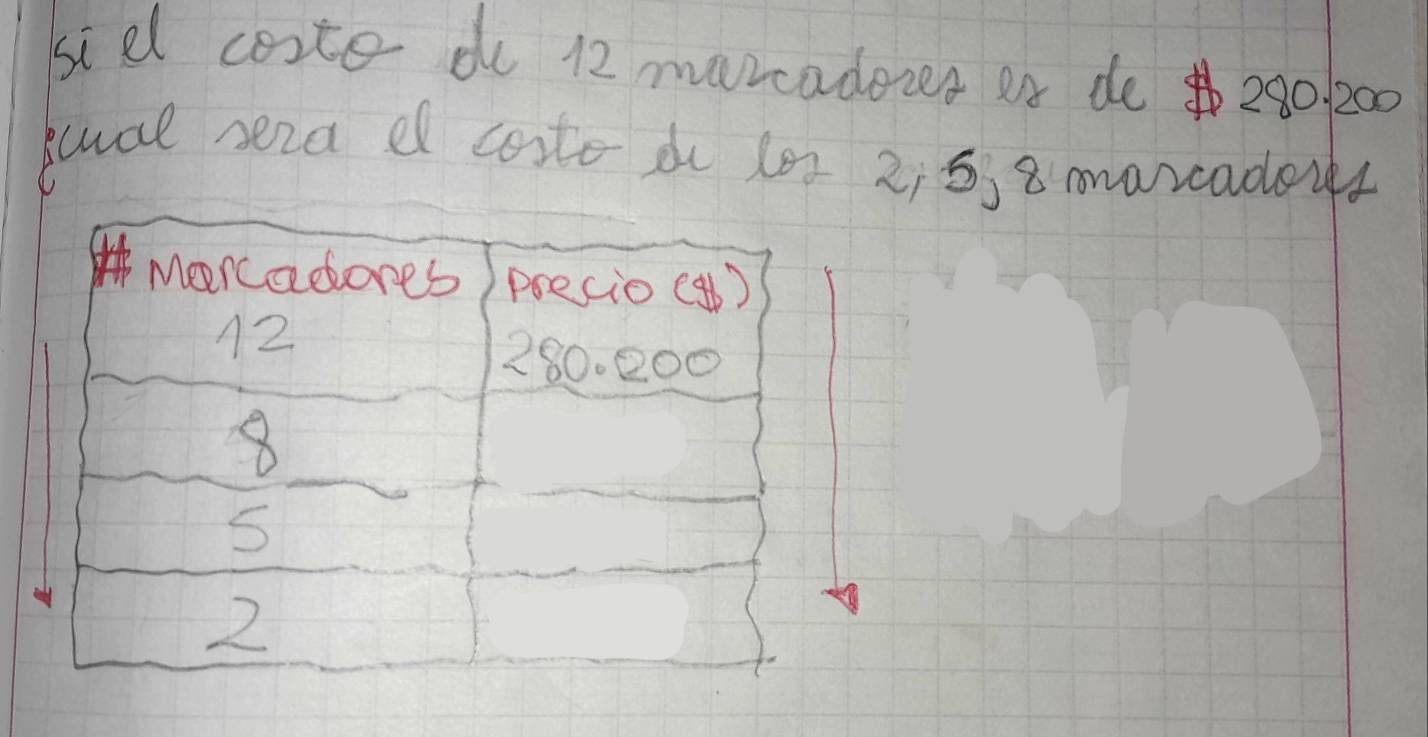 si el costo de 12 marcadores es de $ 280.200
¿cual sera el costo de los 2, 5, 8 marcadores
# Marcadores precio ($)
12 280.200
8
5
2